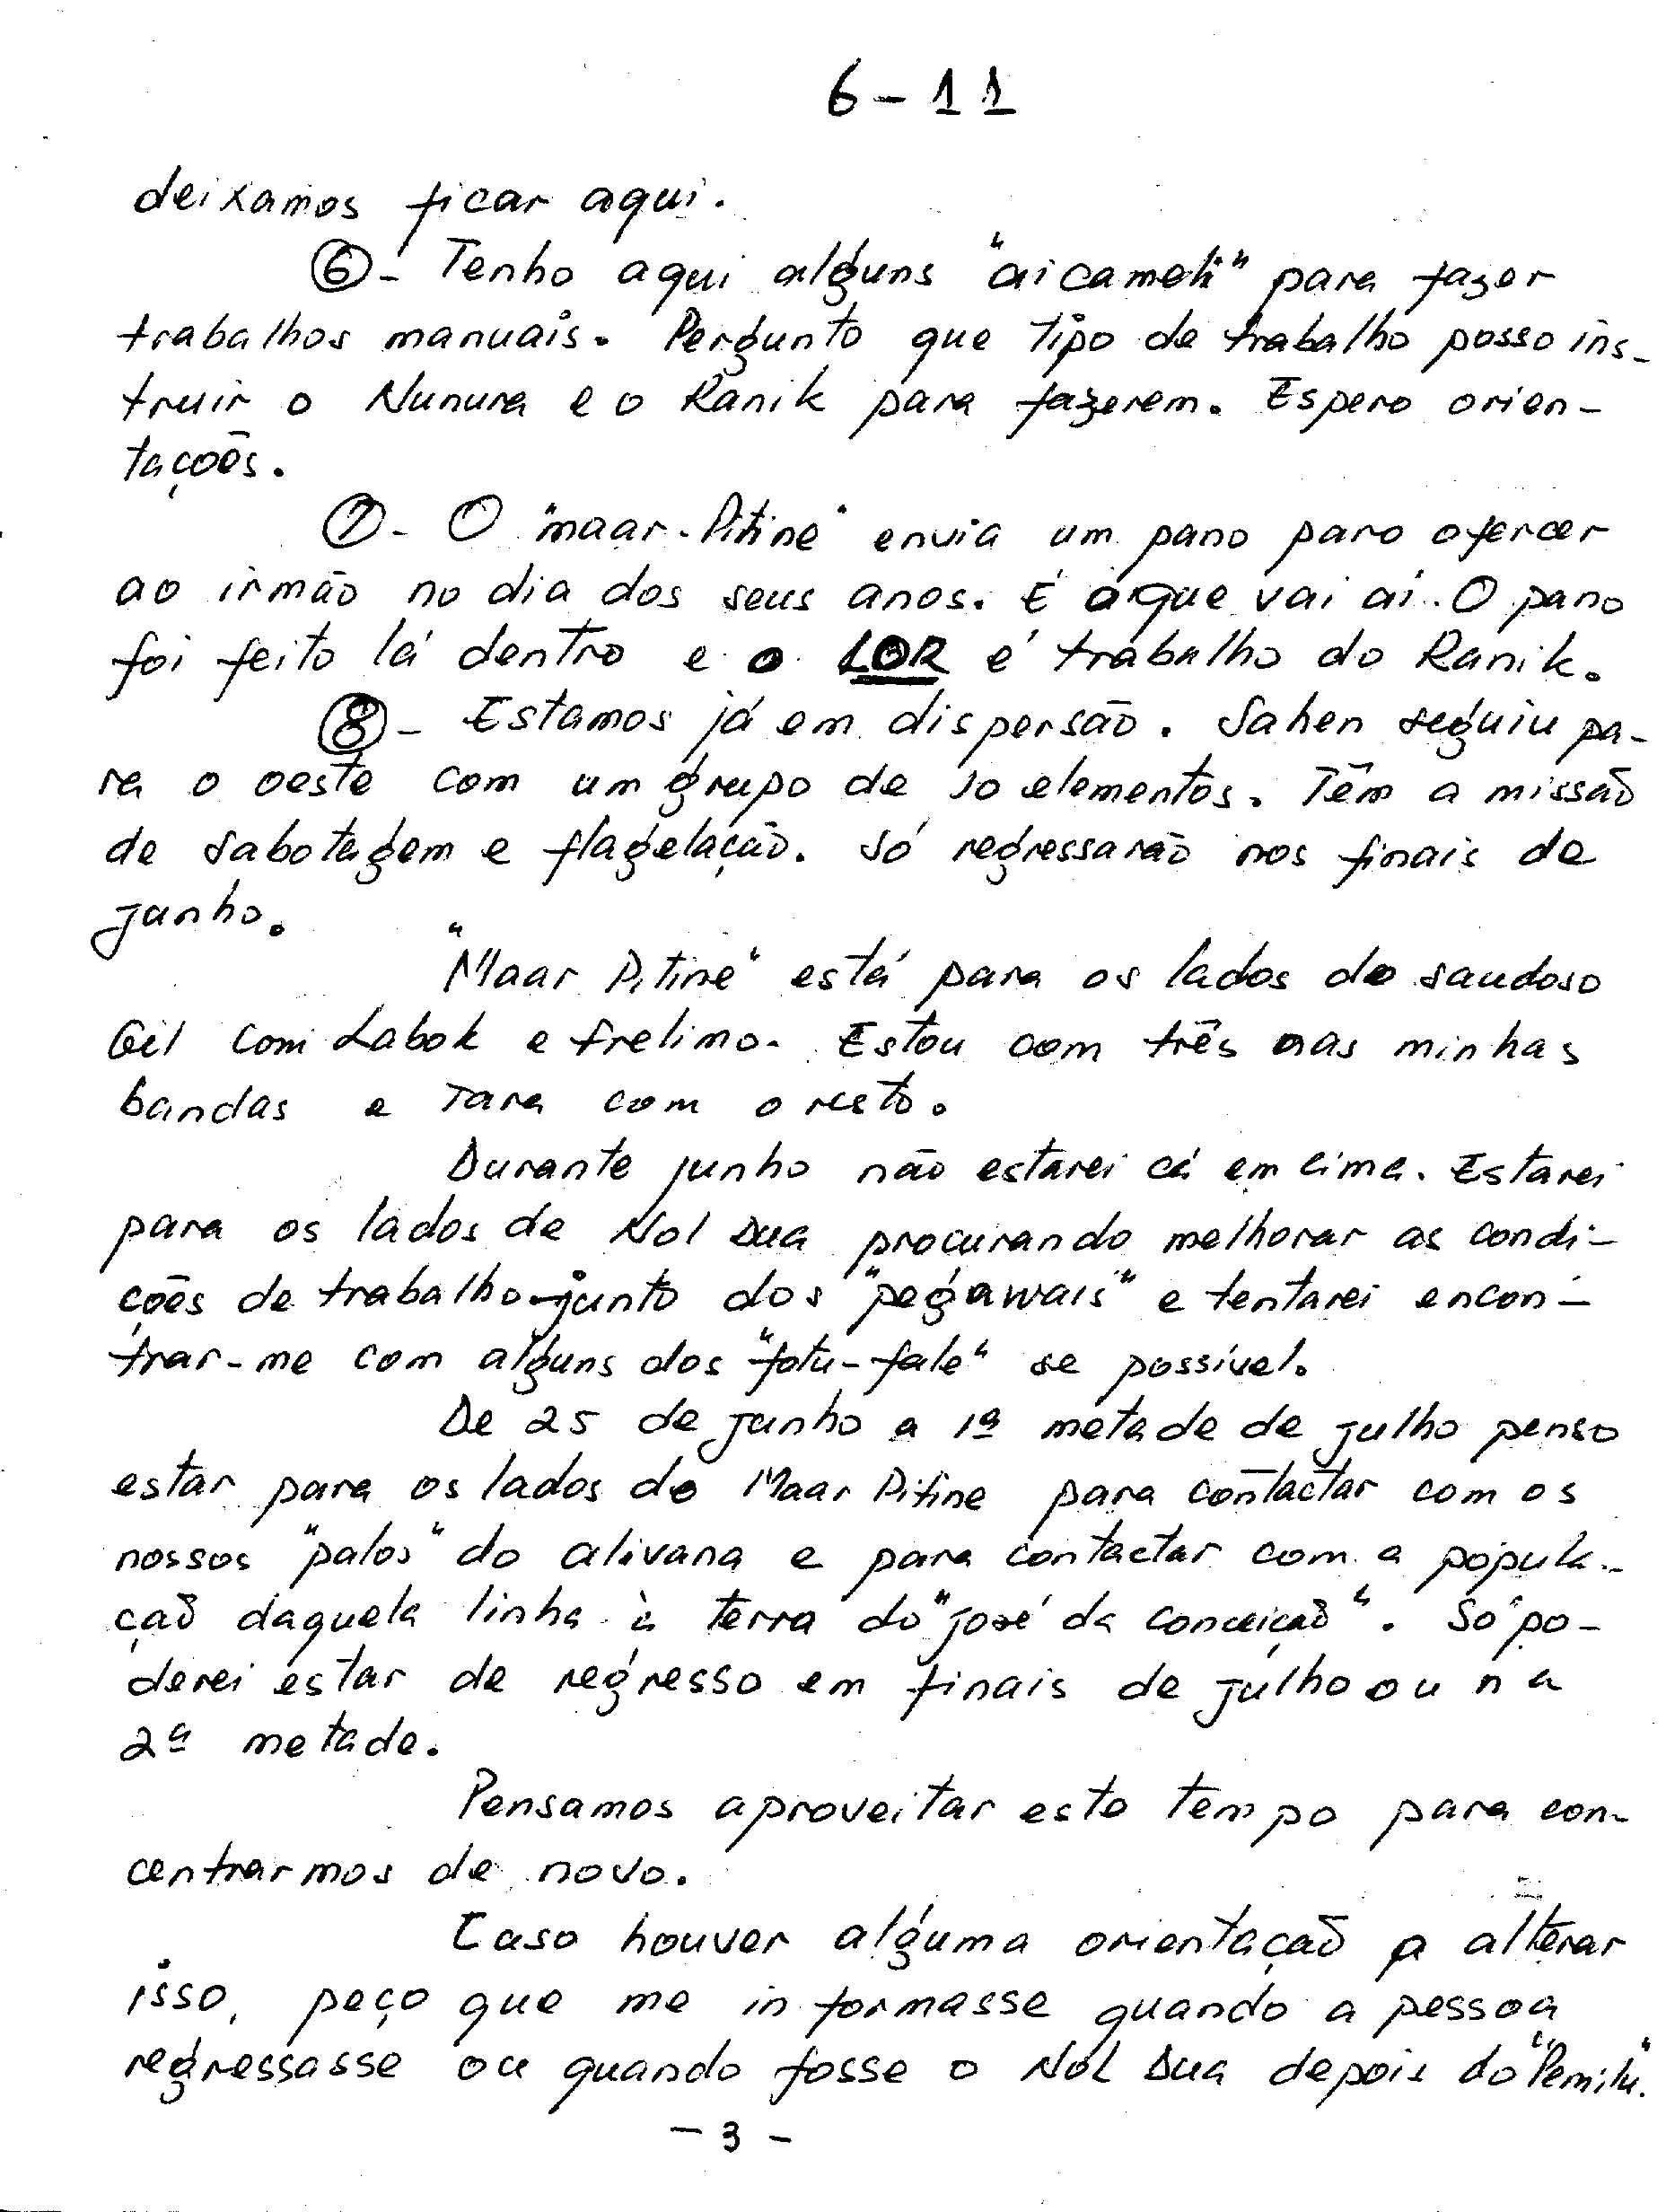 6-11
deixamos ficar aqui.
⑥- Tenho aqui alguns "aicameli" para fazer
trabalhos manuais. Pergunto que tipo de trabalho posso ins-
truir o Nunura e o Ranik para fazerem. Espero orien-
tações.
⑦- O "maar-Pitine" envia um pano para ofercer
ao irmão no dia dos seus anos. É o que vai aí. O pano
foi feito lá dentro e o LOR é trabalho do Ranik.
⑧- Estamos já em dispersão. Sahen seguiu pa-
ra o oeste com um grupo de 10 elementos. Têm a missão
de sabotagem e flagelação. Só regressarão nos finais de
Junho.
"Maar Pitine" está para os lados do saudoso
Gil com Labok e frelimo. Estou com três nas minhas
bandas e Tara com o resto.
Durante junho não estarei cá em cima. Estarei
para os lados de Nol Dua procurando melhorar as condi-
ções de trabalho junto dos "pegawais" e tentarei encon-
trar-me com alguns dos "fotu-fale" se possível.
De 25 de Junho a 1ª metade de Julho penso
estar para os lados do Maar Pitine para contactar com os
nossos "palos" do alivana e para contactar com a popula-
ção daquela linha à terra do "José da Conceição". Só po-
derei estar de regresso em finais de Julho ou na
2ª metade.
Pensamos aproveitar este tempo para con-
centrarmos de novo.
Caso houver alguma orientação a alterar
isso, peço que me informasse quando a pessoa
regressasse ou quando fosse o Nol Dua depois do "Pemilu".
- 3 -